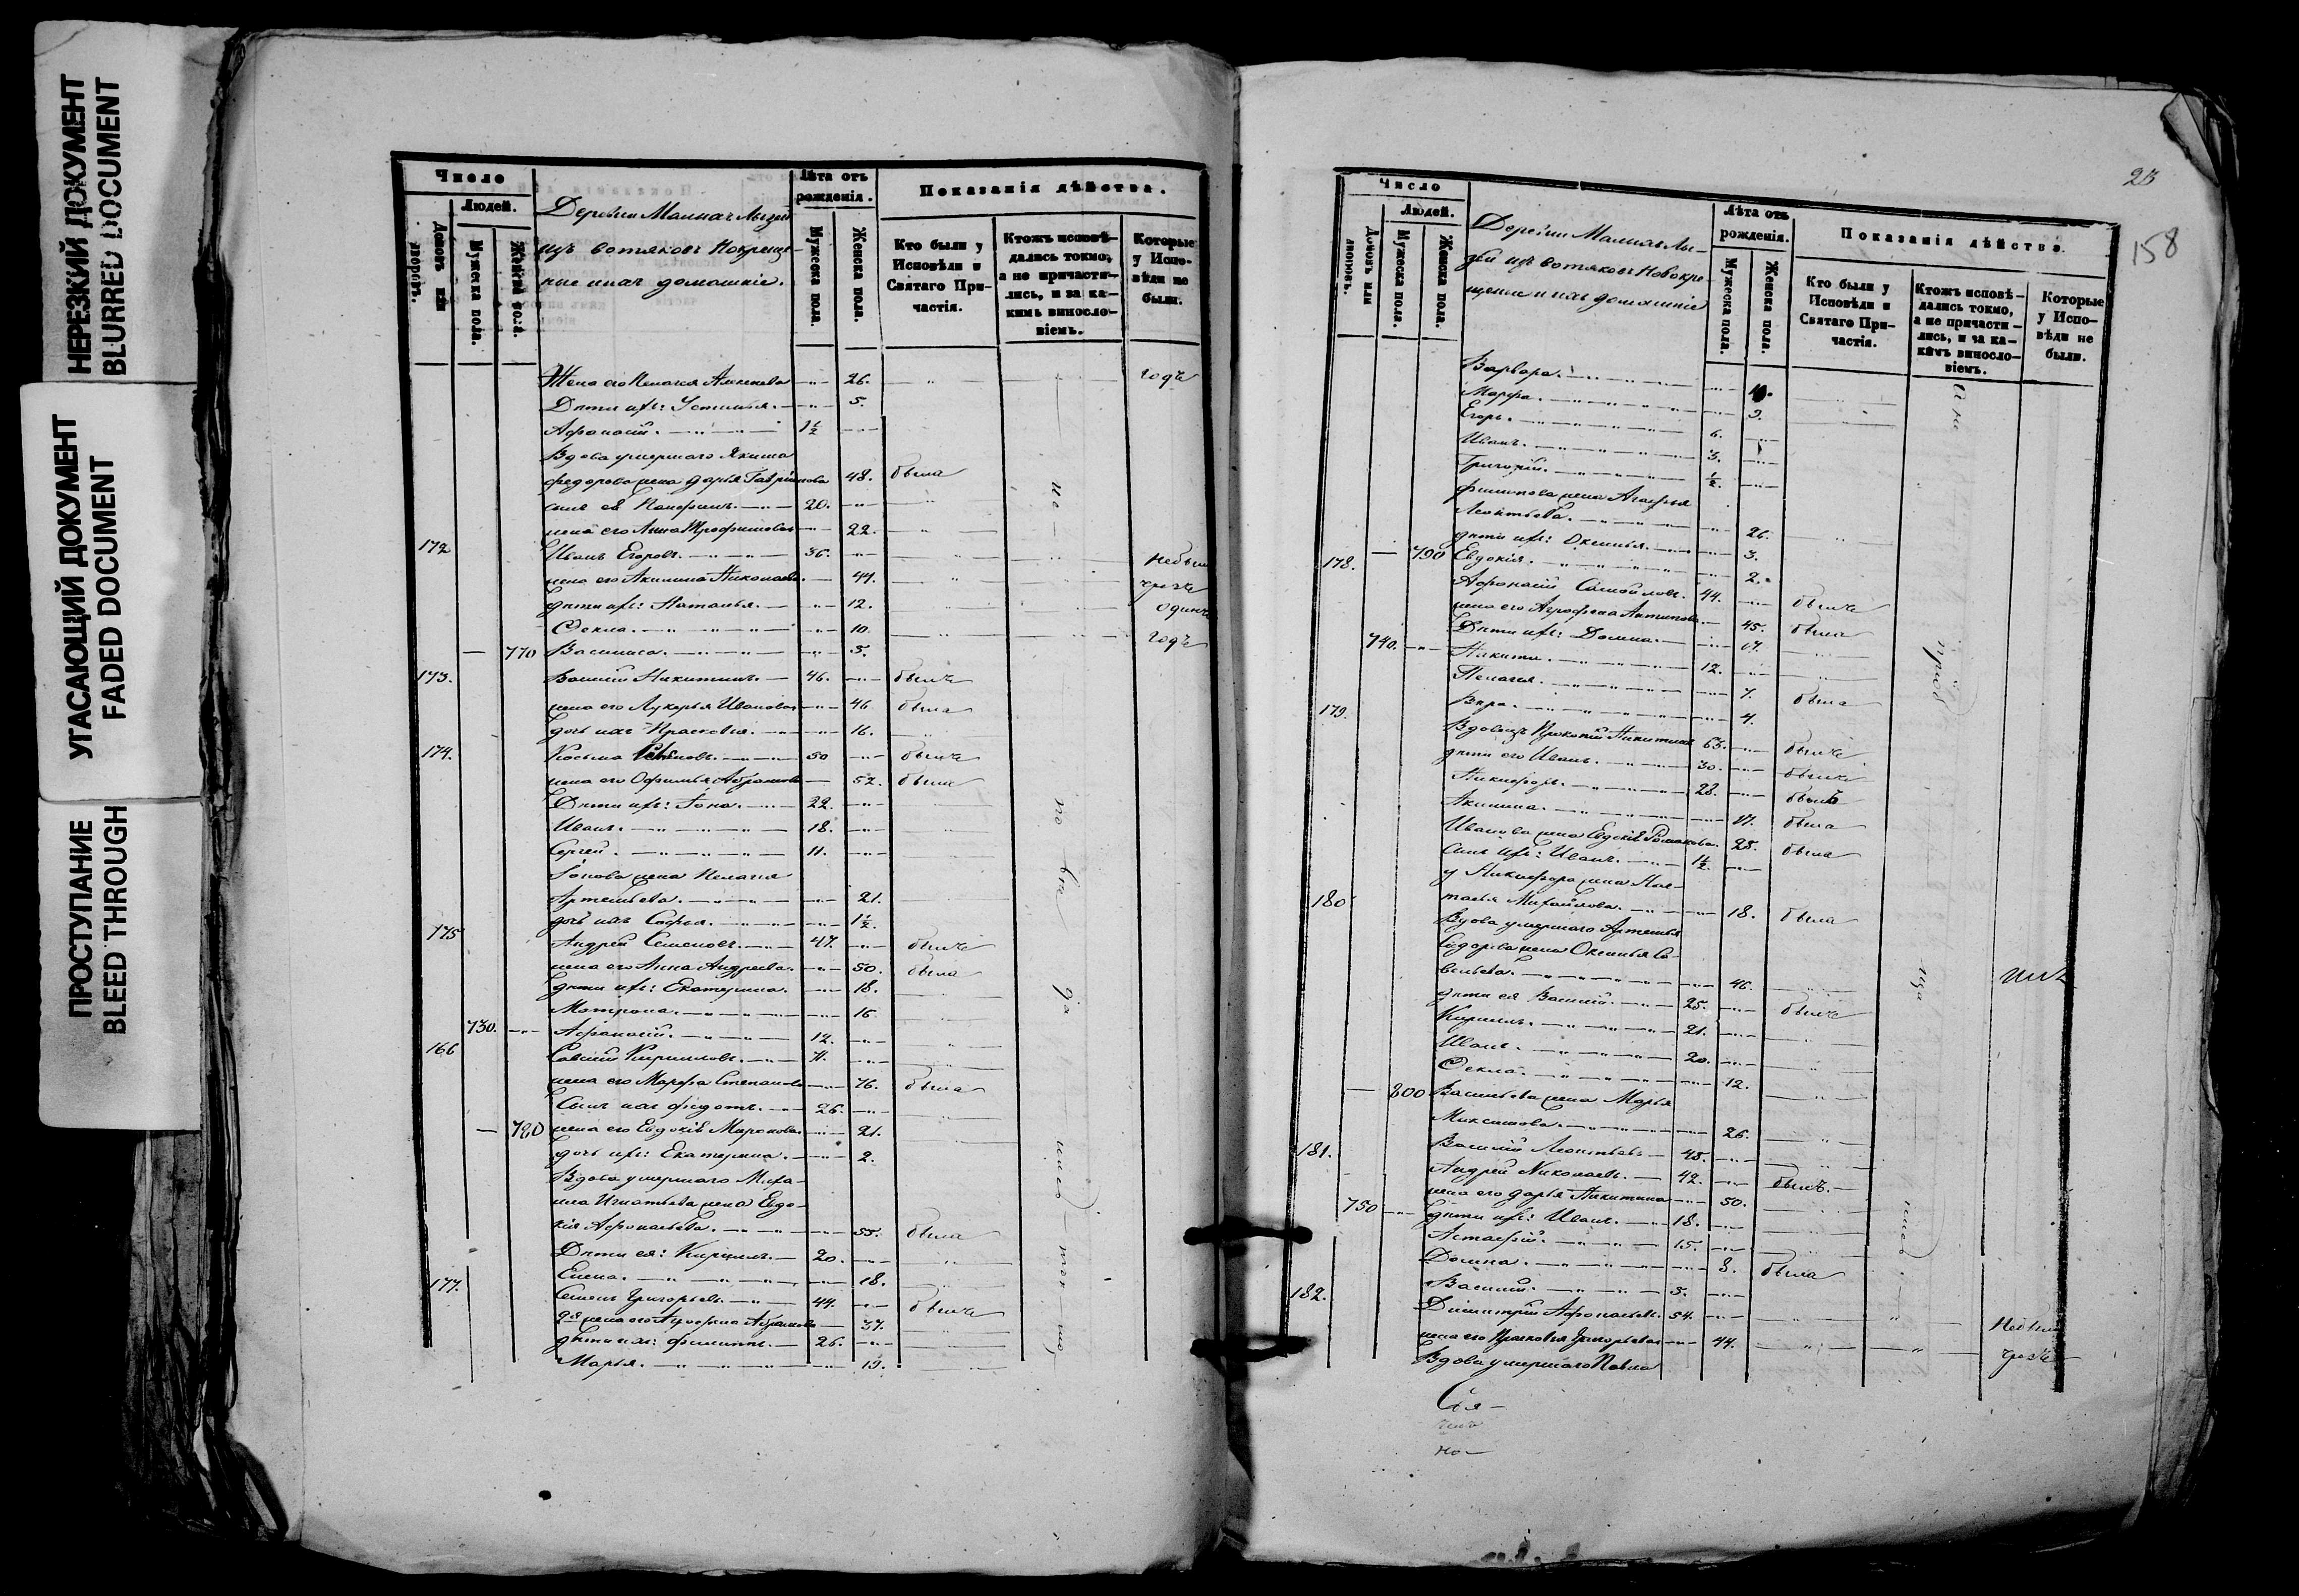 НЕРЕЗКИЙ ДОКУМЕНТ
BLURRED DOCUMENT
УГАСАЮЩИЙ ДОКУМЕНТ
FADED DOCUMENT
ПРОСТУПАНИЕ
BLEED THROUGH
Число
Людей.
Домовъ или дворовъ.
Мужеска пола.
Женска пола.
Деревни Малыхъ Лызей
изъ вотяковъ Нокреще-
ные ихъ домашніе.
Лѣта отъ рожденія.
Мужеска пола.
Женска пола.
Показанія дѣйства.
Кто были у Исповѣди и Святаго При-частія.
Ктожъ исповѣ-дались токмо, а не причасти-лись, и за ка-кимъ виносло-віемъ.
Которые у Испо-вѣди не были.
Жена его Пелагея 26. годъ
Дѣти ихъ: Устинья. 5.
Афонасій. 1½
Вдова умершаго Якима
Федорова жена Дарья 48. была
сынъ её 20.
жена его Анна Трофимова 22.
172 Иванъ Егоровъ. 36. Небыли
жена его Акилина Николаева. 44. чрезъ
дѣти ихъ: Наталья. 12. одинъ
Фекла. 10. годъ
770 Василиса. 5.
173. Василій Никитинъ. 46. былъ
жена его Лукерья Иванова 46. была
дочь ихъ Прасковья. 16.
174. Косьма 50 былъ
жена его Офимья Абрамова 52. была
Дѣти ихъ: Іона. 22.
Иванъ. 18.
Сергей. 11.
Іонова жена Пелагея
Артемьева. 21.
дочь ихъ Софья. 1½.
175 Андрей Семеновъ. 47. былъ
жена его Анна Андреева. 50. была
дѣти ихъ: Екатерина. 18.
Матрона. 16
730. Афонасій. 12.
166 Савелій Кириловъ. 71.
жена его Марфа Степанова 76. была
Сынъ ихъ Федотъ. 26.
780 жена его Евдокія Миронова 21.
дочь ихъ: Екатерина. 2.
Вдова умершаго Миха-
ила Игнатьева жена Евдо-
кія Афонасьева. 55. была
Дѣти ея: Кирилъ. 20.
Елена. 18.
177. Семенъ Григорьевъ. 44. былъ
2я жена его Агрофена Абрамова 37.
дѣти ихъ: Филипъ. 26.
Марья. 19.
23
158
Число
Людей.
Домовъ или дворовъ.
Мужеска пола.
Женска пола.
Деревни Малыхъ Лы-
зей изъ вотяковъ Новокре-
щеные и ихъ домашніе
Лѣта отъ рожденія.
Мужеска пола.
Женска пола.
Показанія дѣйства.
Кто были у Исповѣди и Святаго При-частія.
Ктожъ исповѣ-дались токмо, а не причасти-лись, и за ка-кимъ виносло-віемъ.
Которые у Испо-вѣди не были.
Варвара.
Марфа. 9.
Егоръ. 6.
Иванъ. 3.
Григорій. ½.
Филипова жена Агафья
Леонтьева. 26.
дѣти ихъ: Оксинья. 3.
790 Евдокія. 2.
178. Афонасій Самойловъ. 44. былъ
жена его Агрофена Антипова 45. была
Дѣти ихъ: Домна. 17.
740. Никита. 12.
Пелагея. 7. была
Вѣра. 4.
179. Вдовецъ Прокопій Никитинъ 63. былъ
дѣти его Иванъ. 30. былъ
Никифоръ. 23. былъ
Акилина. 17. была
Иванова жена Евдокія Романова. 28. была
Сынъ ихъ: Иванъ. 1½.
у Никифора жена Ная-
талья Михайлова. 18. была
180 Вдова умершаго Артемья
Сидорова жена Оксинья Са-
вельева. 46.
дѣти ея Василій. 25. былъ
Кирилъ. 21.
Иванъ. 20.
Фекла. 12.
800 Васильева жена Марья
Максимова. 26.
181. Василій Леонтьевъ 45.
Андрей Николаевъ. 42. былъ.
жена его Дарья Никитина 50.
750 дѣти ихъ: Иванъ. 18.
Астафій. 15.
Домна. 8. была
Василій. 3.
182. Димитрій Афонасьевъ. 54. Небыли
жена его Прасковья Григорьева 44. чрезъ
Вдова умершаго Павла